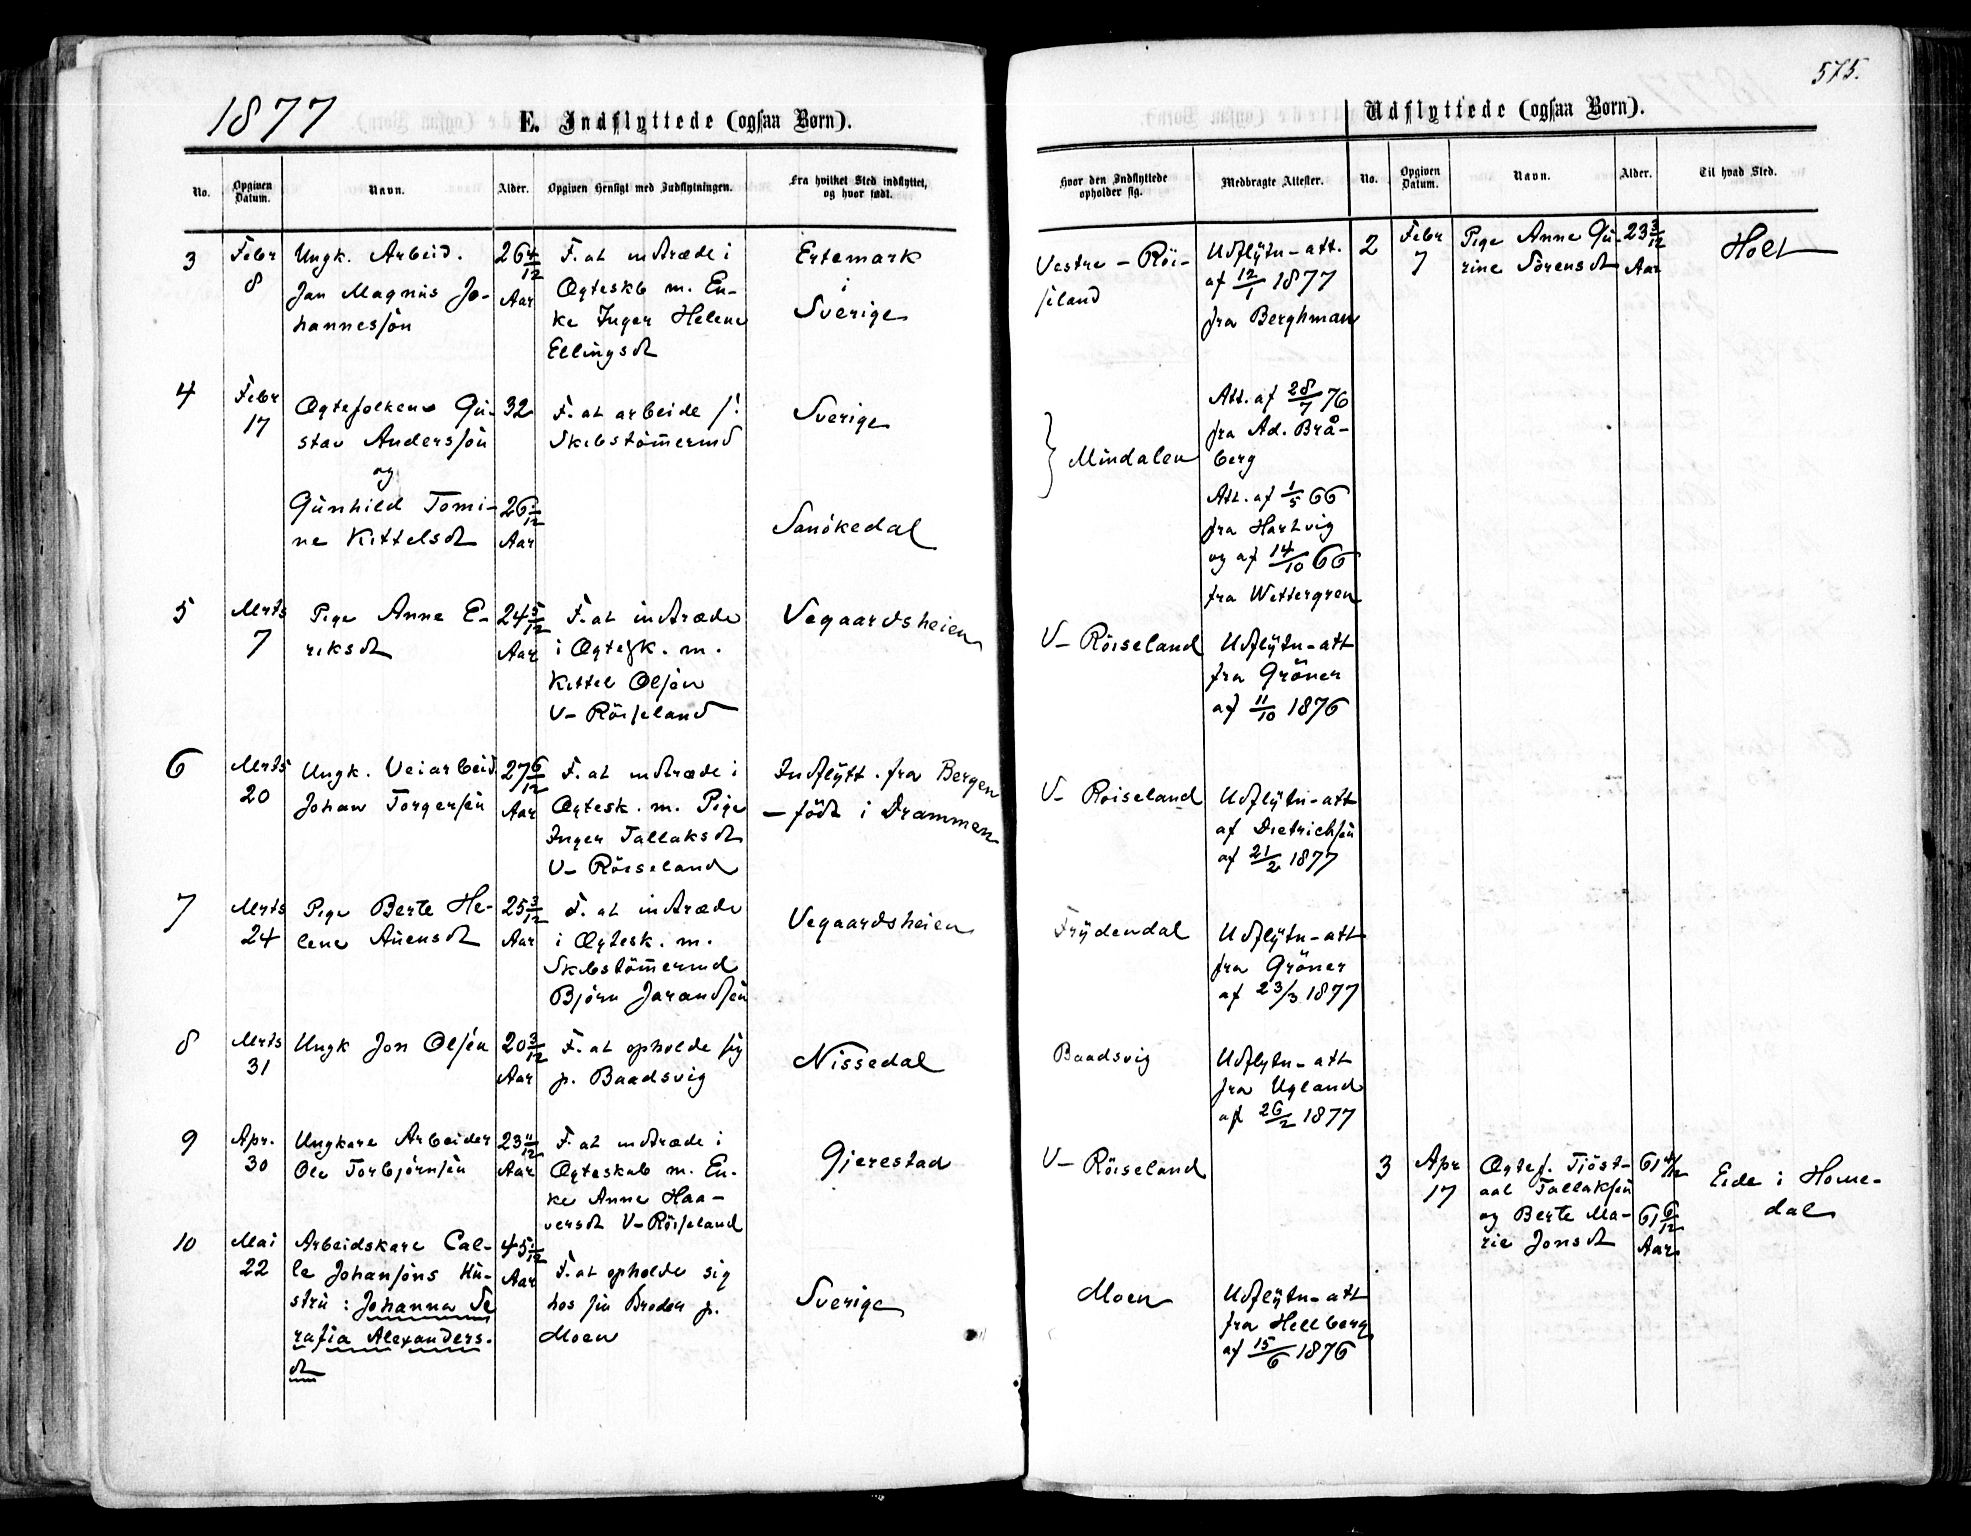 575.
1877
E. Indflyttede (ogsaa Børn).
Udflyttede (ogsaa Børn).
No.
Opgiven Datum.
Navn.
Alder.
Opgiven Hensigt med Indflytningen.
Fra hvilket Sted indflyttet, og hvor født.
Hvor den Indflyttede opholder sig.
Medbragte Attester.
No.
Opgiven Datum.
Navn.
Alder.
Til hvad Sted.
3
Febr
8
Ungk. Arbeid.
Jan Magnus Jo-
hannessøn
26 4/12
Aar
F. at indtræde i
Ægteskb m. En-
ke Inger Helene
Ellingsdt
Ertemark
i
Sverige
Vestre - Röi-
seland
Udflytn-att.
af 12/1 1877
fra Berghman
2
Febr
7
Pige Anne Gu-
rine Sörensdt
23 3/12
Aar
Holt
4
Febr
17
Ægtefolkene Gu-
stav Anderssön
og
Gunhild Tomi-
ne Kittelsdt
32
26 1/12
Aar
F. at arbeide s!
Skibstömermd
Sverige
Sanökedal
Mindalen
Att. af 28/7 76
fra Ad. Brå-
berg
Att. af 1/5 66
fra Hartvig
og af 14/10 66
fra Wettergren
5
Mrts
7
Pige Anne E-
riksdt
24 5/12
Aar
F. at indtræde
i Ægtesk. m.
Kittel Olsen
V- Röiseland
Vegaardsheien
V- Röiseland
Udflytn-att
fra Gröner
af 11/10 1876
6
Mrts
20
Ungk. Veiarbeid.
Johan Torgersen
27 6/12
Aar
F. at indtræde i
Ægtesk. m. Pige
Inger Tallaksdt
V- Röiseland
Indflytt. fra Bergen
- födt i Drammen
V- Röiseland
Udflytn-att
af Dietrichsen
af 21/2 1877
7
Mrts
24
Pige Berte He-
lene Auensdt
25 3/12
Aar
F. at indtræde
i Ægtesk. m.
Skibstömermd
Björn Jarandsen
Vegaardsheien
Frydendal
Udflytn-att
fra Gröner
af 23/3 1877
8
Mrts
31
Ungk Jon Olsen
20 3/12
Aar
F. at opholde sig
p. Baadsvig
Nissedal
Baadsvig
Udflytn-att
fra Ugland
af 26/2 1877
9
Apr.
30
Ungkare Arbeider
Ole Torbjörnsen
23 11/12
Aar
F. at indtræde i
Ægteskab m. En-
ke Anne Haa-
versdt V- Röiseland
Gjerestad
V- Röiseland
3
Apr
17
Ægtef. Tjöst-
aal Tallaksen
og Berte Ma-
rie Jonsdt
61 4/12
61 6/12
Aar
Eide i Home-
dal
10
Mai
22
Arbeidskare Cal-
le Johansöns Hu-
stru: Johanna Se
rafia Alexanders-
dt
45 1/12
Aar
F. at opholde sig
hos sin Broder p.
Moen
Sverige
Moen
Udflytn-att
fra Hellberg
af 15/6 1876